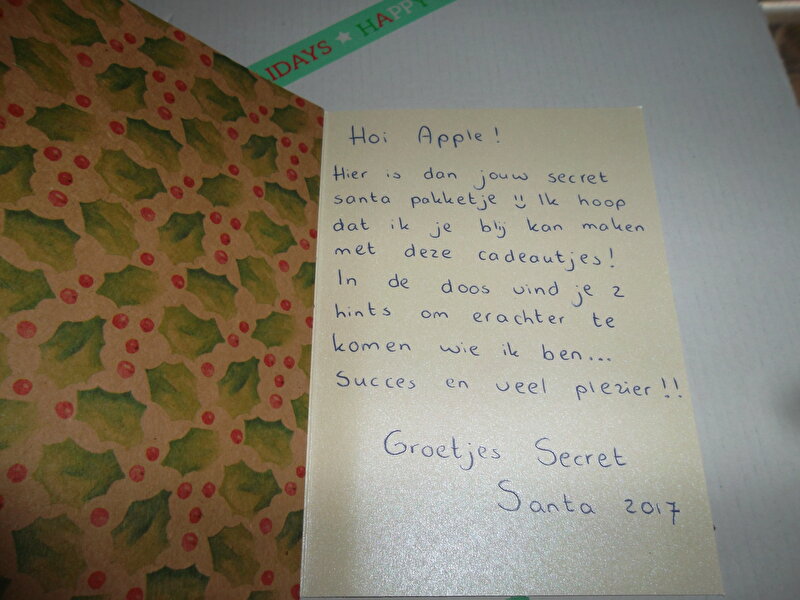 IDAYS ★ HAPPY
Hoi Apple!
Hier is dan jouw secret
santa pakketje :) Ik hoop
dat ik je blij kan maken
met deze cadeautjes!
In de doos vind je 2
hints om erachter te
komen wie ik ben...
Succes en veel plezier!!
Groetjes Secret
Santa 2017